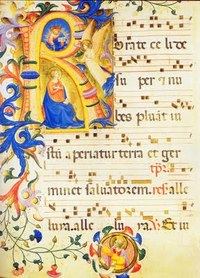 Rorate celi de
su per et nu
bes pluāt iu
stū aperiatur terra et ger
minet saluatorem. alle
luia. alle lu ia. Et iu